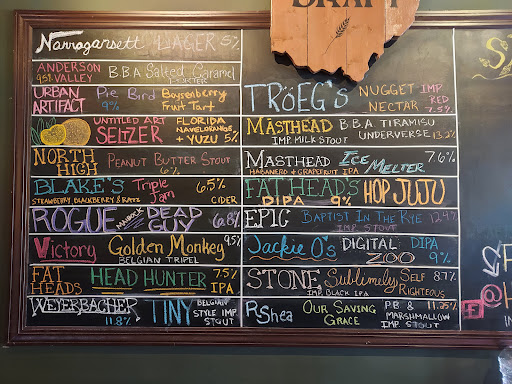 DRAFT
Narragansett LAGER 5%
ANDERSON VALLEY 9.5% B.B.A Salted Caramel PORTER
URBAN ARTIFACT Pie Bird 9% Boysenberry Fruit Tart
UNTITLED ART SELTZER FLORIDA NAVEL ORANGE + YUZU 5%
NORTH HIGH PEANUT BUTTER STOUT 6%
BLAKE'S Triple Jam 6.5%
STRAWBERRY BLACKBERRY & RAZZ CIDER
ROGUE MAIBOCK DEAD GUY 6.8%
Victory Golden Monkey 9.5%
BELGIAN TRIPEL
FAT HEADS HEAD HUNTER 7.5% IPA
WEYERBACHER 11.8% TINY BELGIAN STYLE IMP. STOUT
TRÖEG'S NUGGET NECTAR IMP RED 7.5%
MASTHEAD B.B.A TIRAMISU
IMP. MILK STOUT UNDERVERSE 13.2%
MASTHEAD ICE MELTER 7.6%
HABANERO & GRAPEFRUIT IPA
FAT HEAD'S HOP JUJU
DIPA 9%
EPIC BAPTIST IN THE RYE 12.4%
IMP. STOUT
Jackie O's DIGITAL ZOO DIPA 9%
STONE Sublimely Self Righteous 8.7%
IMP. BLACK IPA
R.Shea OUR SAVING GRACE P.B & MARSHMALLOW IMP. STOUT 11.25%